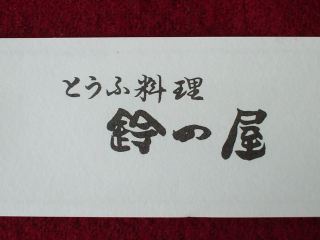 とうふ料理
鈴の屋